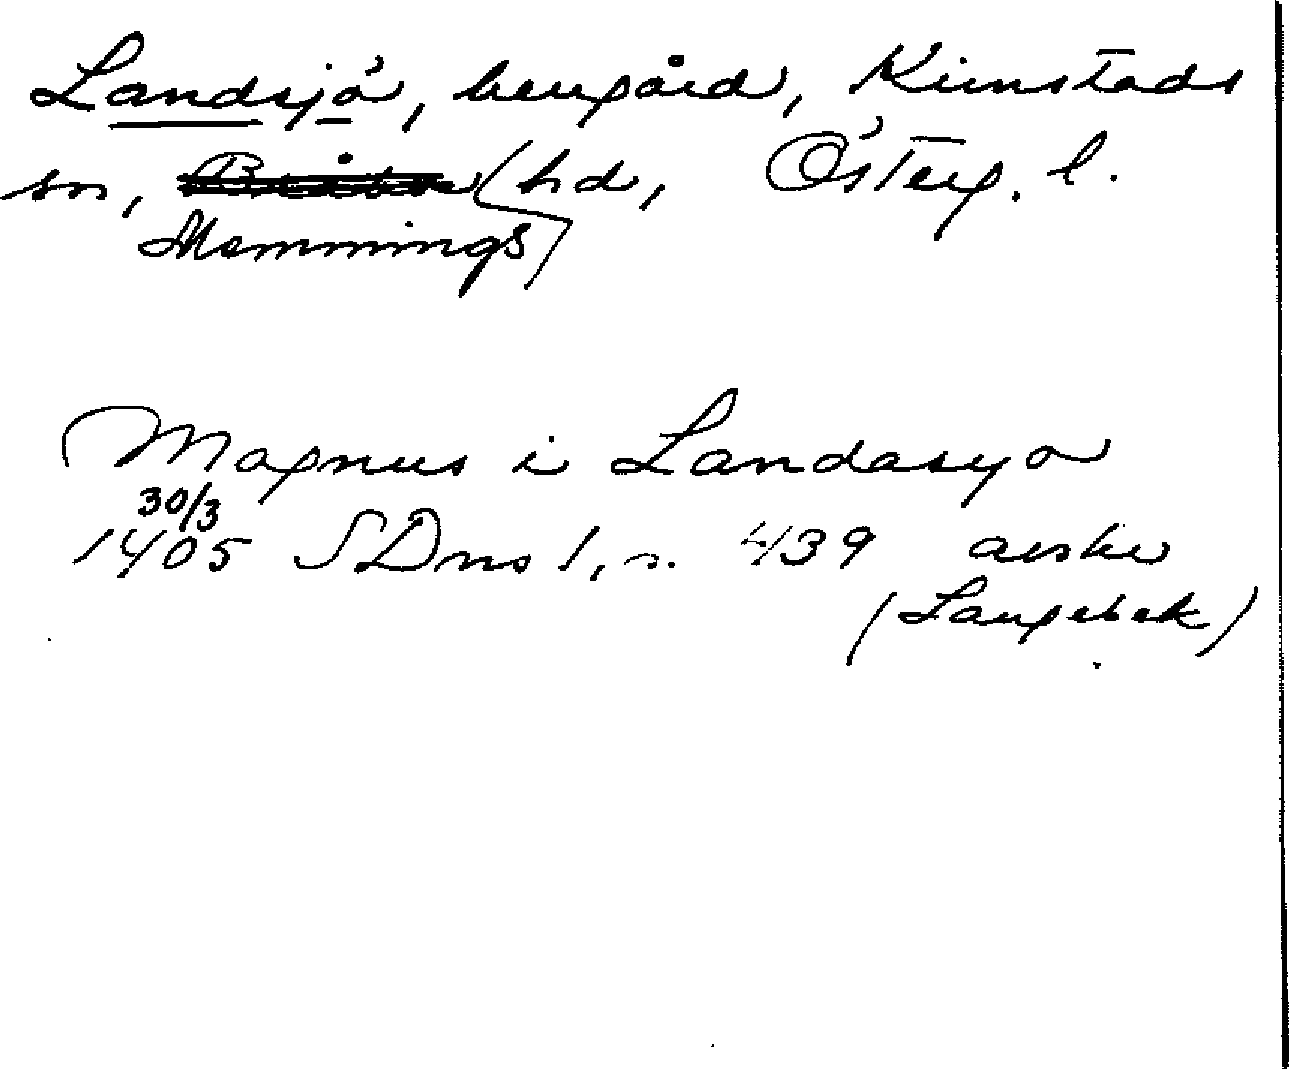 Landsjö, herrgård, Kimstads
sn, hd, Österg. l.
Memmings
Magnus i Landasyo
30/3
1405 SDns 1, s. 439 avskr
(Langebek)